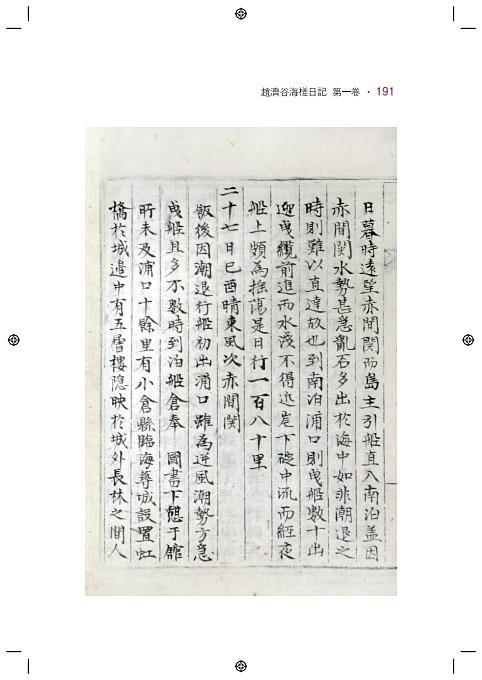 趙濟谷海槎日記 第一卷 · 191
日暮時遠望赤間關而島主引船直入南泊盖因
赤間関水勢甚急亂石多出於海中如非潮退之
時則難以直達故也到南泊浦口則曳船數十出
迎曳纜前進而水淺不得近岸下碇中流而經夜
船上頗為揺蕩是日行一百八十里
二十七日己酉晴東風次赤間関
飯後因潮退行船初出浦口雖為逆風潮勢方急
曳船且多不數時到泊船倉奉 國書下憩于舘
所未及浦口十餘里有小倉縣臨海築城設置虹
橋於城邊中有五層樓隠映於城外長林之間人